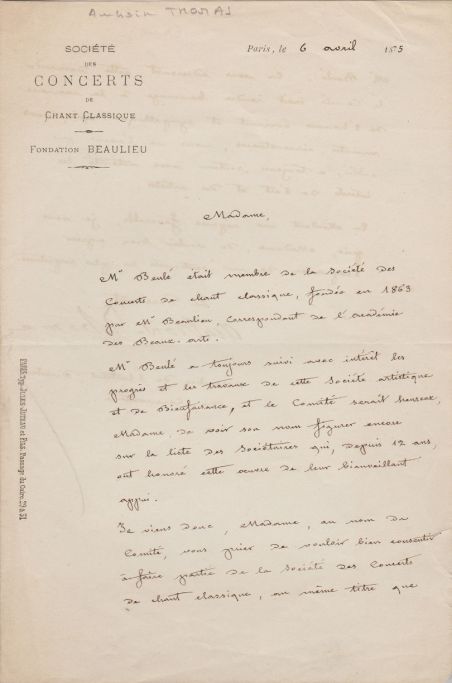 Ambroise THOMAS
SOCIÉTÉ
DES
CONCERTS
DE
CHANT CLASSIQUE
FONDATION BEAULIEU
Paris, le 6 avril 1875
Madame,
Mr Beulé était membre de la Société des
Concerts de chant classique, fondée en 1863
par Mr Beaulieu, correspondant de l'académie
des Beaux-arts.
Mr Beulé a toujours suivi avec intérêt les
progrès et les travaux de cette Société artistique
et de Bienfaisance, et le Comité serait heureux,
Madame, de voir son nom figurer encore
sur la liste des Sociétaires qui, depuis 12 ans,
ont honoré cette œuvre de leur bienveillant
appui.
Je viens donc, Madame, au nom du
Comité, vous prier de vouloir bien consentir
à faire partie de la Société des Concerts
de chant classique, au même titre que
PARIS, Typ. JULES-JUTEAU et FILS, Passage du Caire, 29 & 31